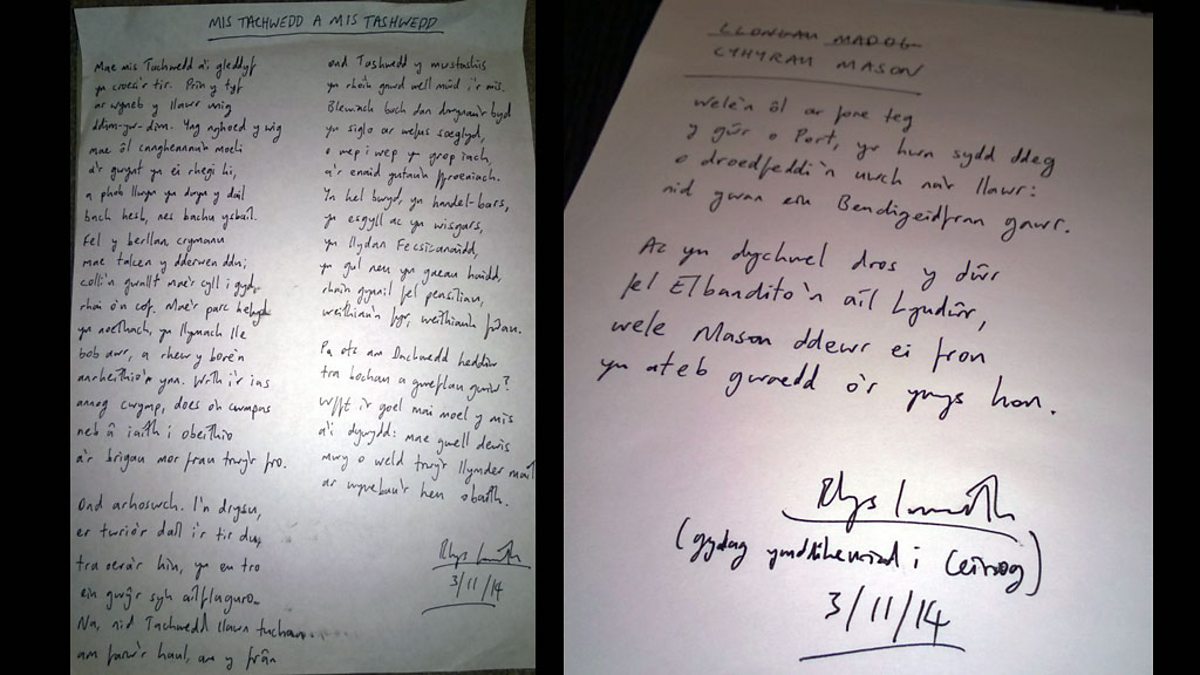 MIS TACHWEDD A MIS TASHWEDD
Mae mis Tachwedd a'i gleddyf
yn croesi'r tir. Prin y tyf
ar wyneb y llawr unig
ddim-yw-dim. Yng nghoed y wig
mae ôl canghennau'n moeli
a'r gwynt yn ei rhegi hi,
a phob llwyn yn dwyn y dail
bach hesb, nes bachu ysbail.
Fel y berllan, crymanu
mae talcen y dderwen ddu;
colli'n gwallt mae'r cyll i gyd,
rhai o'n cof. Mae'r parc hefyd
yn noethach, yn llymach lle
bob awr, a rhew y bore'n
anrheithio'r ynn. Wrth i'r ias
annog cwymp, does o'n cwmpas
neb â iaith i obeithio
a'r brigau mor frau trwy'r fro.
Ond arhoswch. I'n drysu,
er twrio'r dall i'r tir du,
tra oera'r hin, yn eu tro
ein gwŷr sy'n ailflaguro.
Na, nid Tachwedd llawn tuchan
am farw'r haul, am y frân
ond Tashwedd y mwstashis
yn rhoin gnwd well mûd i'r mis.
Blewiach bach dan drwynau'r byd
yn siglo ar wefus soeglyd,
o wep i wep yn grop iach,
a'r enaid gusta'n ffroeniach.
Yn hel bwyd, yn handel-bars,
yn esgyll ac yn wisgars,
yn llydan Fecsicanaidd,
yn gul neu yn gaeau haidd,
rhai'n gynil fel pensiliau,
weithiau'n fyr, weithiau'n frau.
Pa ots am Dachwedd heddiw
tra bochau a gweflau gwiw?
Wfft i'r goel mai moel y mis
a'i dywydd: mae gwell dewis
mwy o weld trwy'r llymder maith
ar wynebau'r hen obaith.
3/11/14
LLONGAU MADOG
CYHYRAU MASON
Wele'n ôl ar fore teg
y gŵr o Port, yr hwn sydd ddeg
o droedfeddi'n uwch na'r llawr:
nid gwan ein Bendigeidfran gawr.
Ac yn dychwel dros y dŵr
fel El Bandito'n ail Lyndŵr,
wele Mason ddewr ei fron
yn ateb gwaedd o'r ynys hon.
Rhys Iorwerth
(gydag ymddiheuriad i Ceiriog)
3/11/14